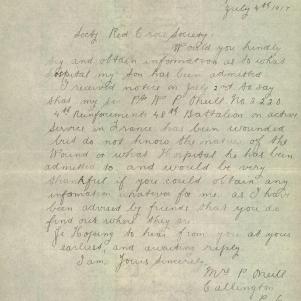 July 4th 1917
Secty Red Cross Society.
Would you kindly
try and obtain information as to what
Hospital my son has been admitted
I received notice on July 2nd to say
that my son Pte W P O'Neill No 3220
4th Reinforcements 48th Battalion on active
Service in France has been wounded
but do not know the nature of the
Wound or what Hospital he has been
admitted to and would be very
thankful if you could obtain any
information whatever for me. as I have
been advised by friends that you do
find out where they are.
Hoping to hear from you at your
earliest, and awaiting reply
I am Yours Sincerely
Mrs P O'Neill
Callington